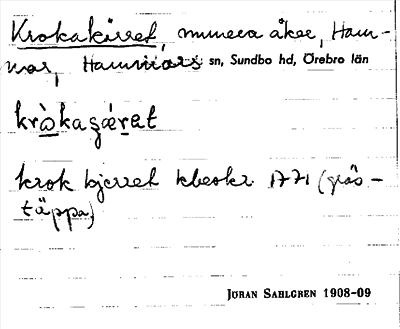 Krokakärret, numera åker, Ham-
mar, Hammars sn, Sundbo hd, Örebro län
kròkaʂǽret
krok kjerret kbeskr 1771 (gräs-
täppa)
JÖRAN SAHLGREN 1908-09